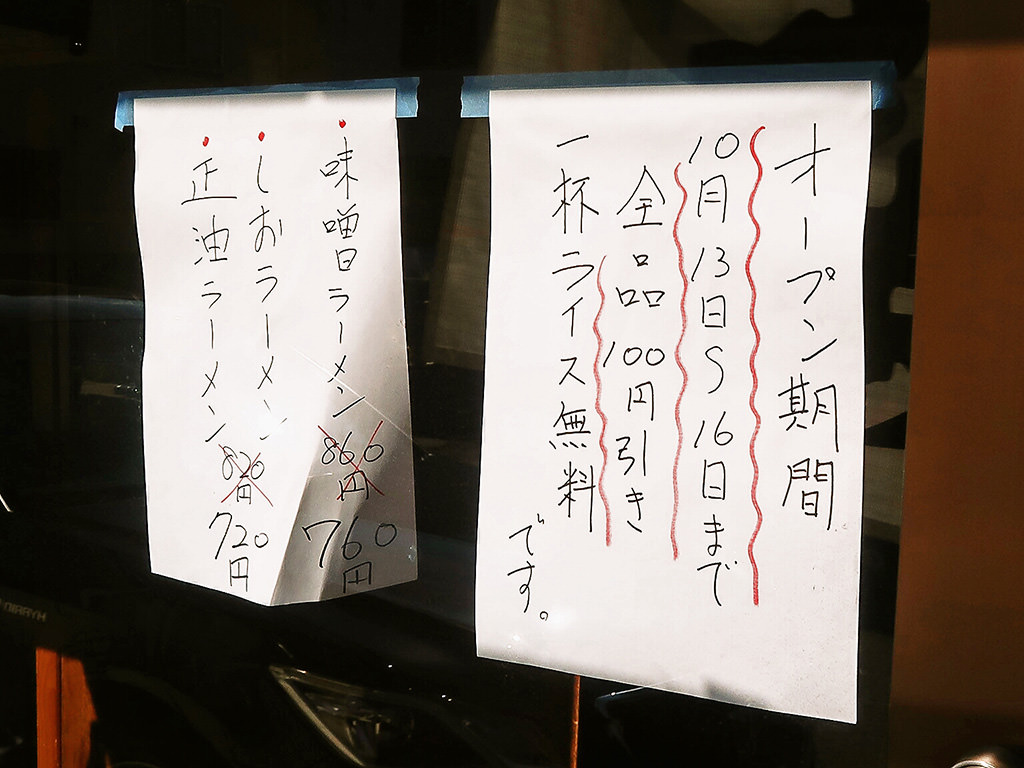 オープン期間
10月13日〜16日まで
全品100円引き
一杯ライス無料
です。
味噌ラーメン 860円 760円
しおラーメン
正油ラーメン 820円 720円